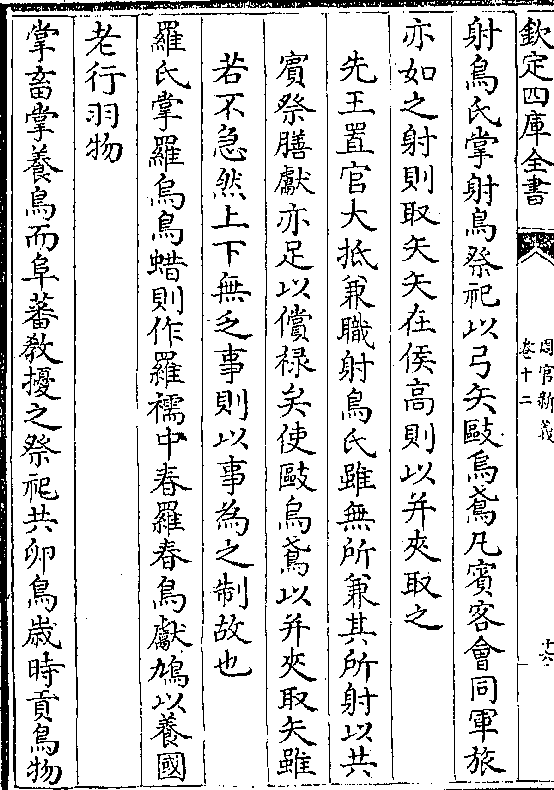 欽定四庫全書
周官新義
卷十二
十六
射鳥氏掌射鳥祭祀以弓矢敺烏鳶凡賓客會同軍旅
亦如之射則取矢矢在侯高則以并夾取之
先王置官大抵兼職射鳥氏雖無所兼其所射以共
賓祭膳獻亦足以償禄矣使敺烏鳶以并夾取矢雖
若不急然上下無乏事則以事為之制故也
羅氏掌羅烏鳥蜡則作羅襦中春羅春鳥獻鳩以養國
老行羽物
掌畜掌養鳥而阜蕃教擾之祭祀共卵鳥歲時貢鳥物